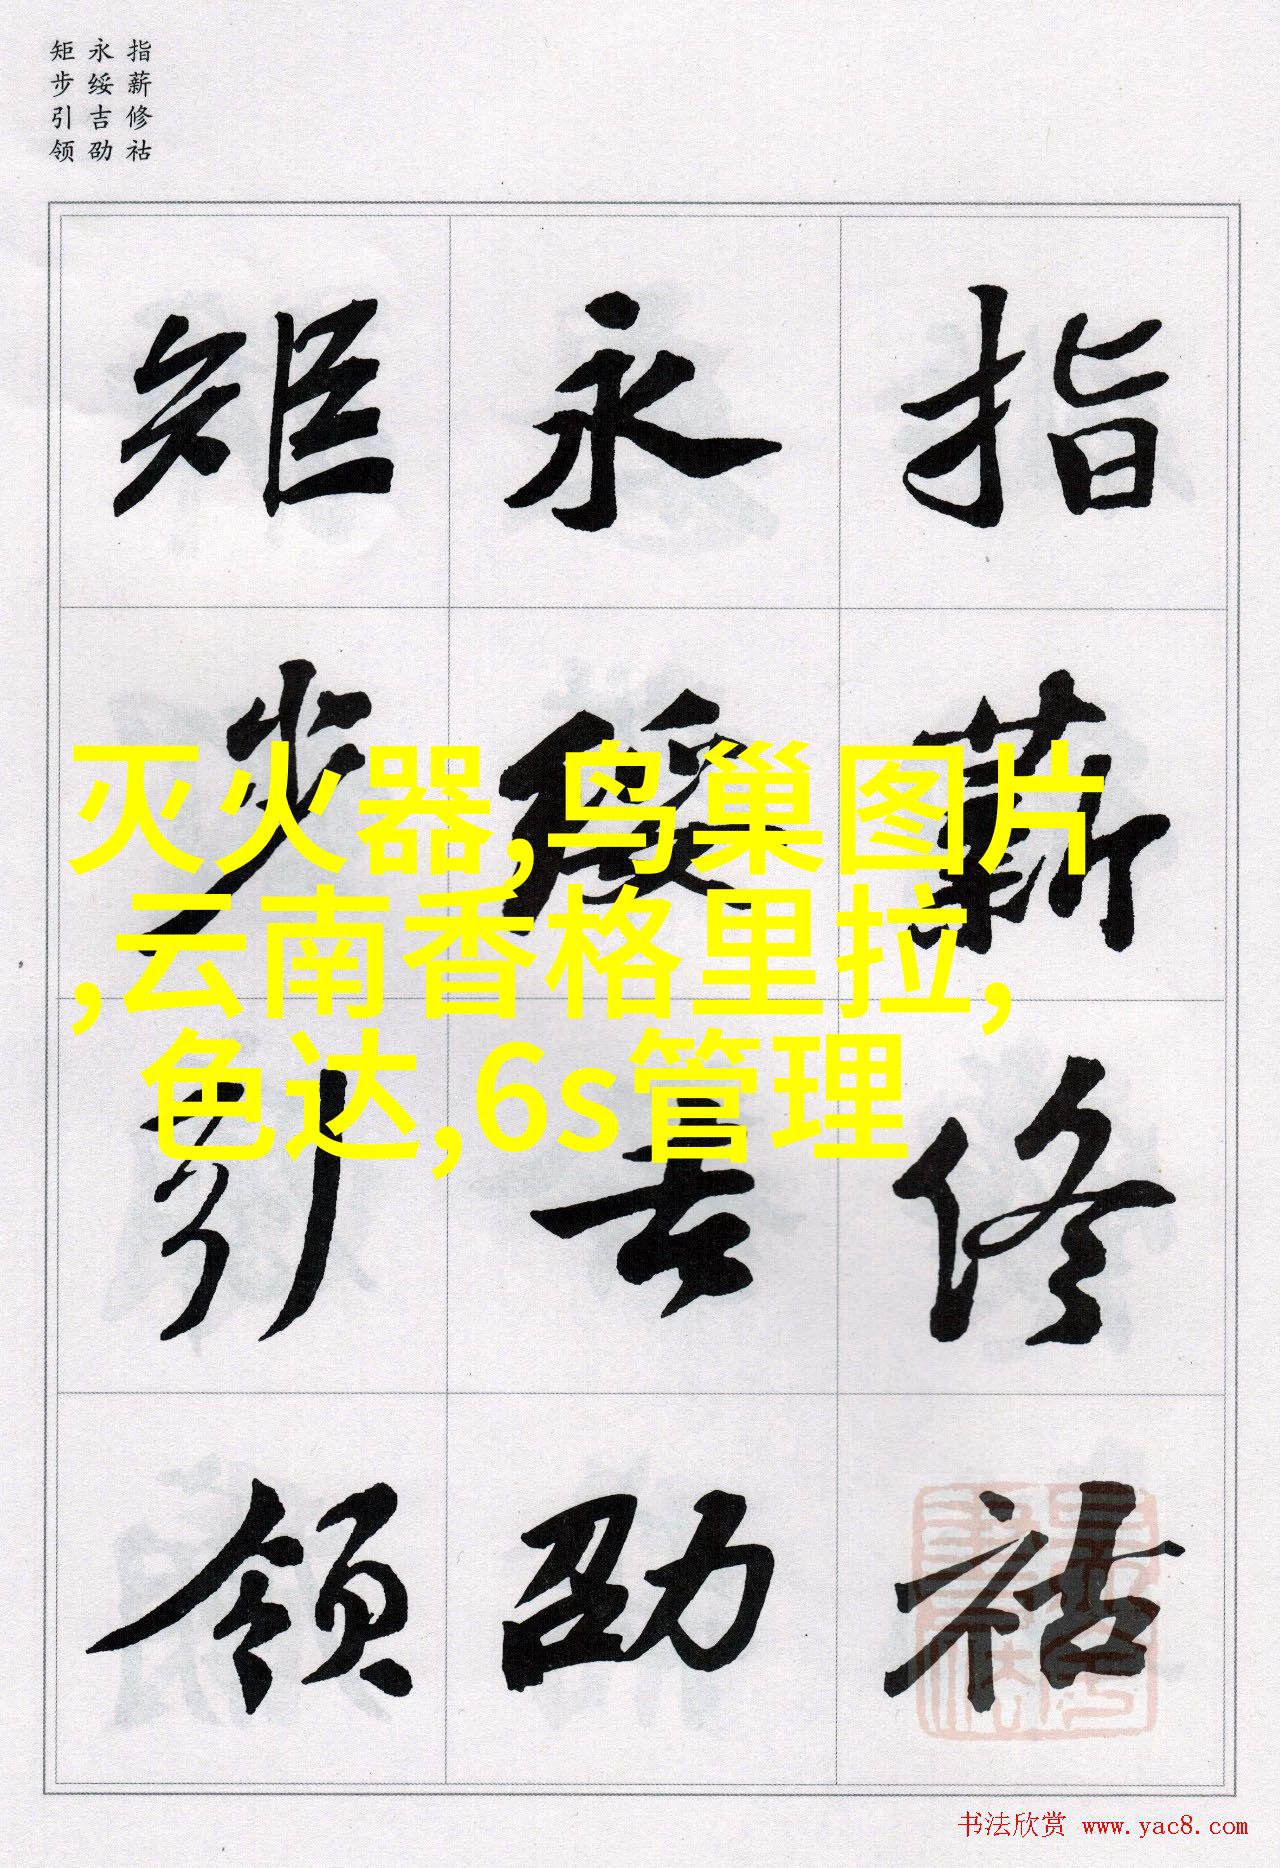 指薪修祜
永绥吉劭
矩步引领
指薪修祜
永绥吉劭
矩步引领
灭火器,鸟巢图片
,云南香格里拉,
色达,6s管理
书法欣赏 www.yac8.com